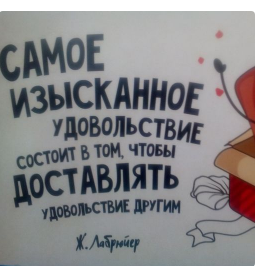 САМОЕ
ИЗЫСКАННОЕ
УДОВОЛЬСТВИЕ
СОСТОИТ В ТОМ, ЧТОБЫ
ДОСТАВЛЯТЬ
УДОВОЛЬСТВИЕ ДРУГИМ
Ж. Лабрюйер